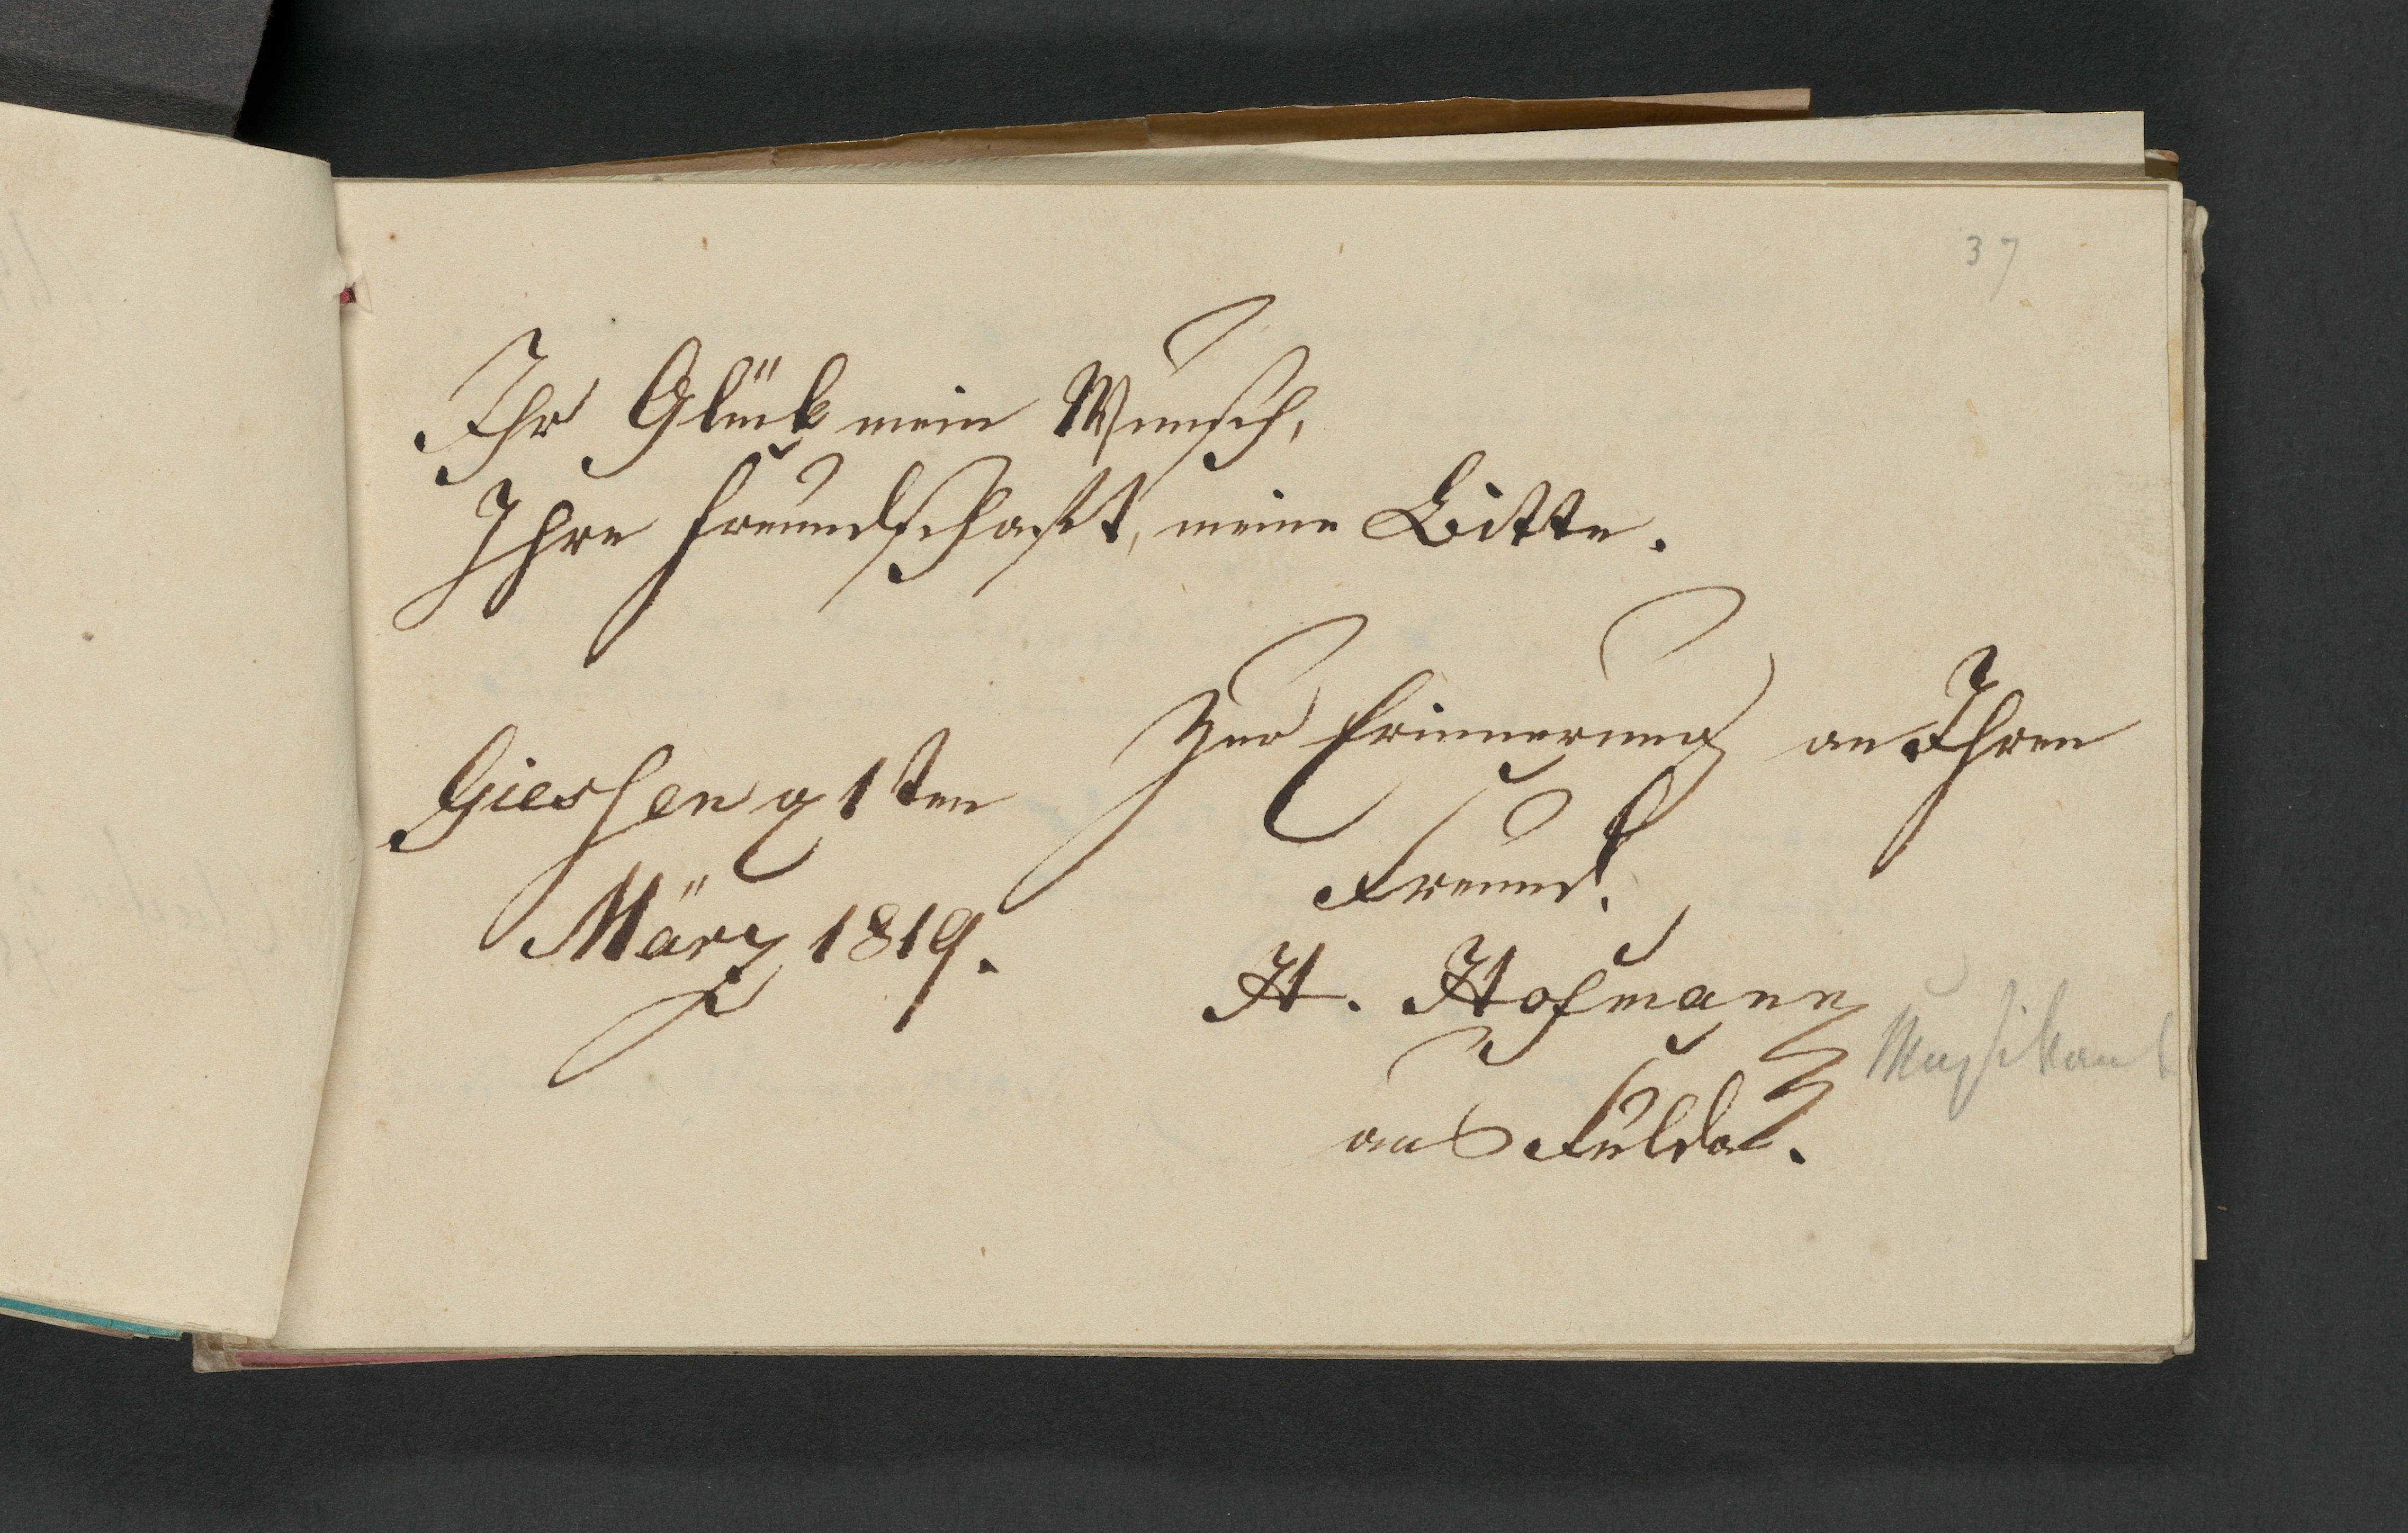 37
Ihr Glück mein Wunsch,
Ihre Freundschaft, meine Bitte.
Zur Erinnerung an Ihren
Freund.
H. Hofmann
aus Fulda.
Musikant
Giessen
März 1819.